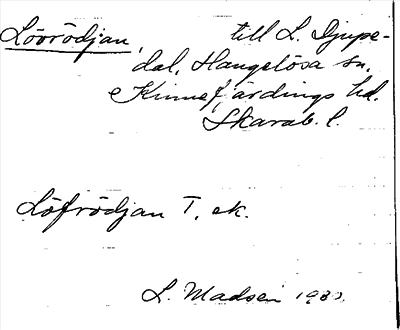 Lövrödjan, till L. Djupe-
dal, Hangelösa sn.
Kinnefjärdings hd.
Skarab. l.
Löfrödjan T. ek.
L. Madsén